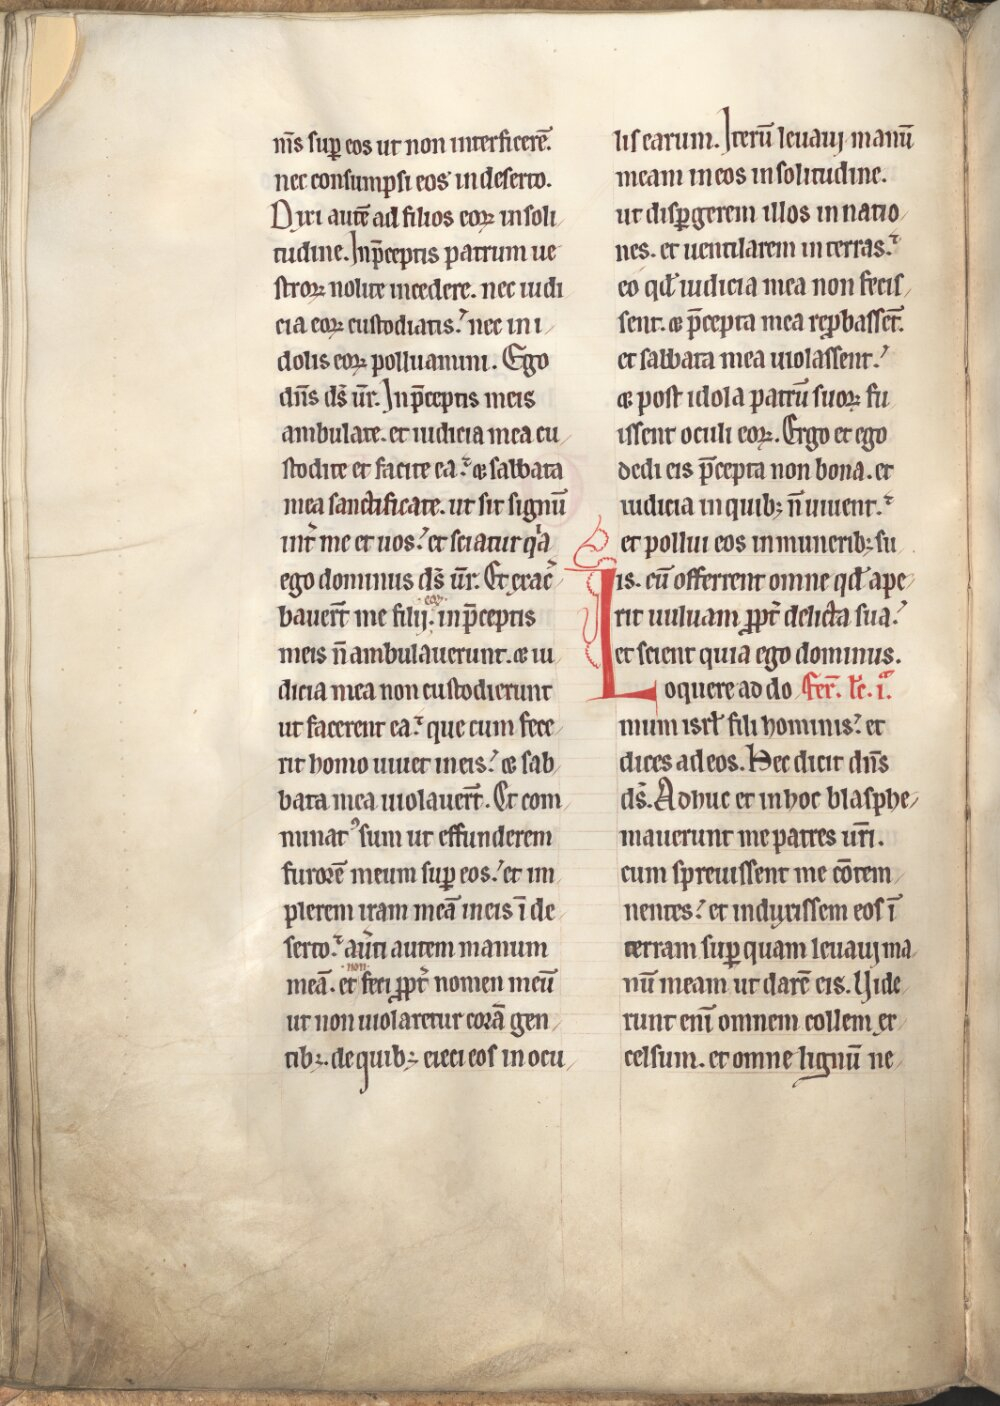 m̅s suꝑ eos ut non interficerē.
nec consumpsi eos in deserto.
Dixi autē ad filios eoꝝ in soli
tudine. In p̄ceptis patrum ue
stroꝝ nolite incedere. nec iudi
cia eoꝝ custodiatis. nec in i
dolis eoꝝ polluamini. Ego
dn̄s ds̄ ūr. In p̄ceptis meis
ambulate. et iudicia mea cu
stodite et facite ea. ⁊ sabbata
mea sanctificate. ut sit signū
int̄ me et uos. et sciatur qa
ego dominus ds̄ ūr. Et exac̄
bauer̄t me filij. eoꝝ. in p̄ceptis
meis n̄ ambulauerunt. ⁊ iu
dicia mea non custodierunt
ut facerent ea. que cum fece
rit homo uiuet in eis. ⁊ sab
bata mea uiolauer̄t. Et com
minatꝰ sum ut effunderem
furorē meum suꝑ eos. et im
plerem iram meā in eis ī de
serto. au̅ti autem manum
meā. et non feci ꝓpt̄ nomen meū
ut non uiolaretur corā gen
tibꝫ. de quibꝫ eieci eos in ocu
lis earum. Iterū leuauj manū
meam in eos in solitudine.
ut disꝑgerem illos in natio
nes. et uentilarem in terras.
eo qd̄ iudicia mea non fecis
sent. ⁊ p̄cepta mea reꝓbassēt.
et sabbata mea uiolassent.
⁊ post idola patrū suoꝝ fu
issent oculi eoꝝ. Ergo et ego
dedi eis p̄cepta non bona. et
iudicia in quibꝫ n̄ uiuent.
et pollui eos in muneribꝫ su
is. cū offerrent omne qd̄ ape
rit uuluam ꝓpt̄ delicta sua.
et scient quia ego dominus.
Loquere ad do fer̄. lc̄. iᵃ.
mum isrl̄ fili hominis. et
dices ad eos. Hec dicit dn̄s
ds̄. Adhuc et in hoc blasphe
mauerunt me patres ur̄i.
cum spreuissent me cōtem
nentes. et induxissem eos ī
terram suꝑ quam leuauj ma
nū meam ut darē eis. Vide
runt enī omnem collem ex
celsum. et omne lignū ne